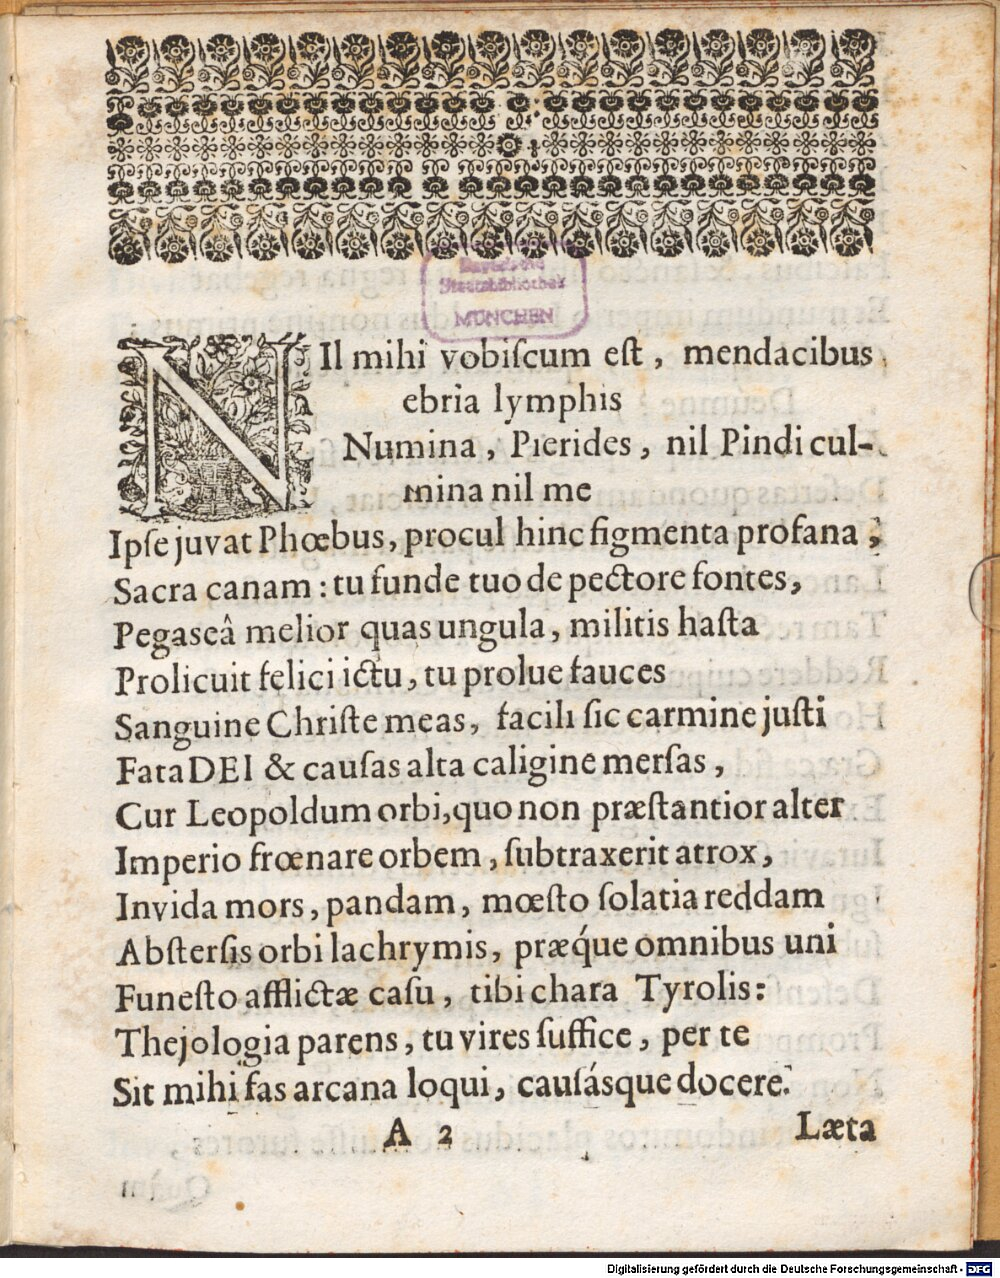 Bayerische
Staatsbibliothek
MÜNCHEN
NIl mihi vobiſcum eſt, mendacibus
ebria lymphis
Numina, Pierides, nil Pindi cul-
mina nil me
Ipſe juvat Phœbus, procul hinc figmenta profana;
Sacra canam: tu funde tuo de pectore fontes,
Pegaseâ melior quas ungula, militis haſta
Prolicuit felici ictu, tu prolue fauces
Sanguine Chriſte meas, facili ſic carmine juſti
Fata DEI & cauſas alta caligine merſas,
Cur Leopoldum orbi, quo non præſtantior alter
Imperio frœnare orbem, ſubtraxerit atrox,
Invida mors, pandam, mœſto ſolatia reddam
Abſterſis orbi lachrymis, præq́ue omnibus uni
Funeſto afflictæ caſu, tibi chara Tyrolis:
Thejologia parens, tu vires ſuffice, per te
Sit mihi fas arcana loqui, cauſásque docere.
A 2 Læta
Digitalisierung gefördert durch die Deutsche Forschungsgemeinschaft - DFG